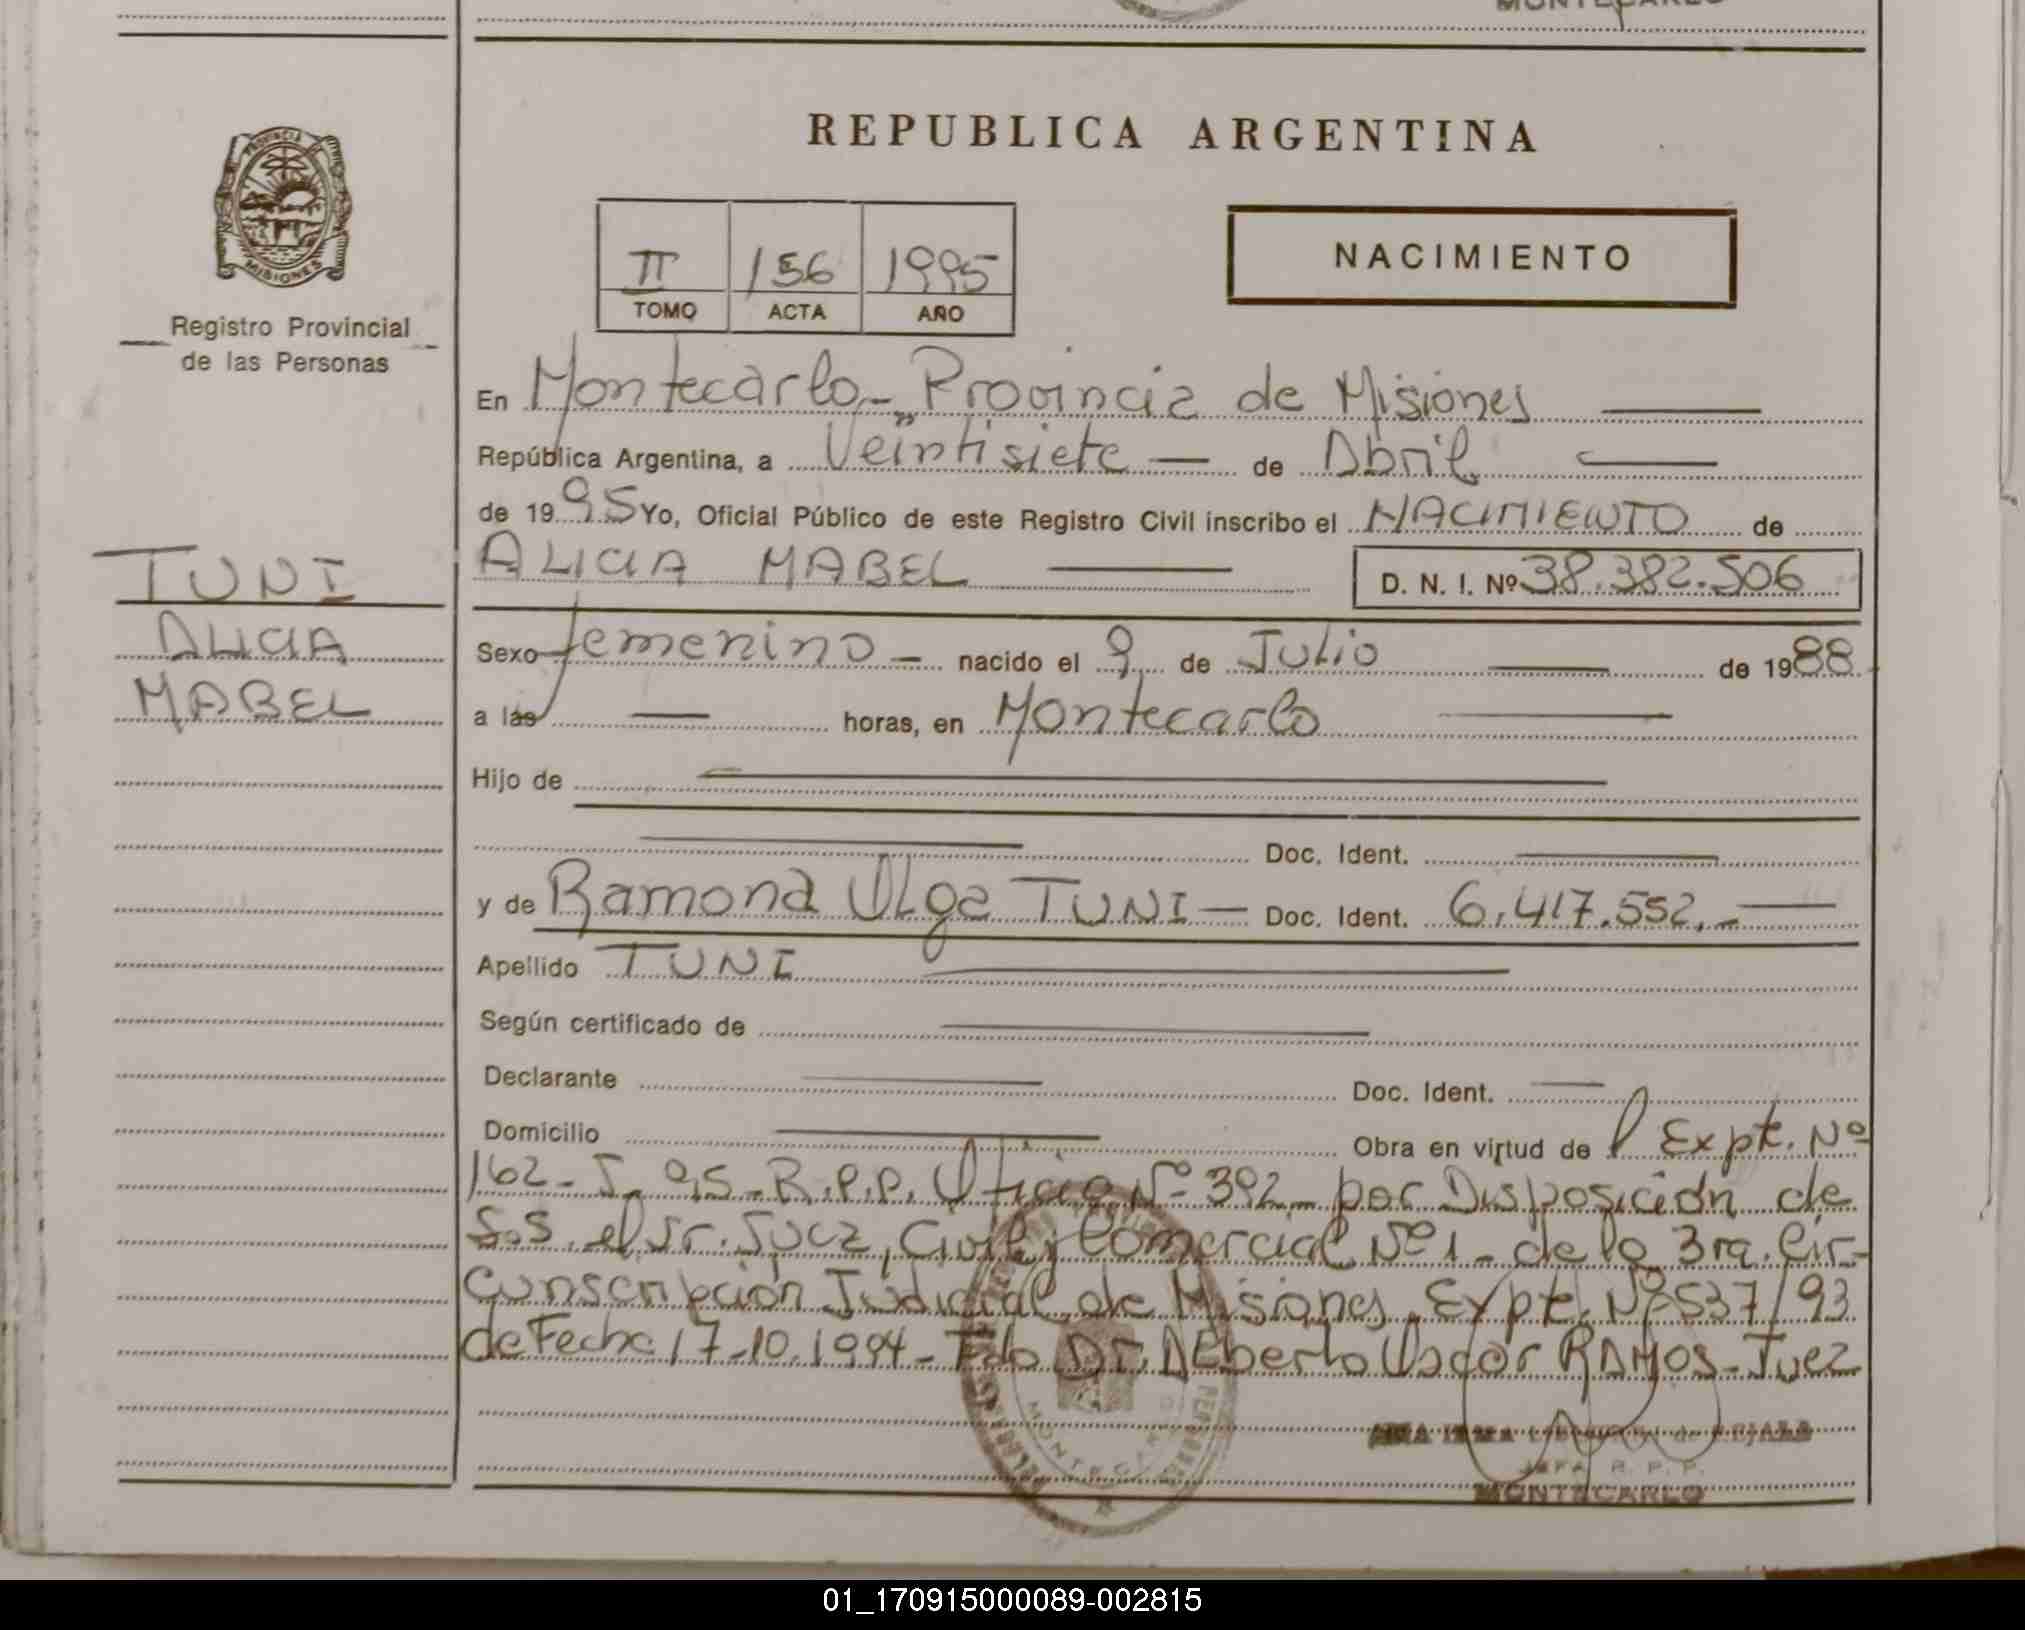 MONTECARLO
REPUBLICA ARGENTINA
PROVINCIA DE
MISIONES
Registro Provincial
de las Personas
II 156 1995
TOMO ACTA AÑO
NACIMIENTO
En Montecarlo - Provincia de Misiones
República Argentina, a Veintisiete de Abril
de 1995 Yo, Oficial Público de este Registro Civil inscribo el NACIMIENTO de
ALICIA MABEL D. N. I. Nº 38.382.506
TUNI
ALICIA
MABEL
Sexo femenino - nacido el 9 de Julio de 1988
a las horas, en Montecarlo
Hijo de
Doc. Ident.
y de Ramona Olga TUNI - Doc. Ident. 6.417.552.-
Apellido TUNI
Según certificado de
Declarante Doc. Ident.
Domicilio Obra en virtud de Expte. Nº
162-J-95-R.P.P. Oficio Nº 392 por Disposición de
S.S. el Sr. Juez, Civil y Comercial Nº 1 - de la 3ra. Cir-
cunscripción Judicial de Misiones, Expte. Nº 537/93
de Fecha 17-10-1994 - Fdo Dr. Alberto RAMOS - Juez
MONTECARLO
JEFA R. P. P.
MONTECARLO
01_170915000089-002815